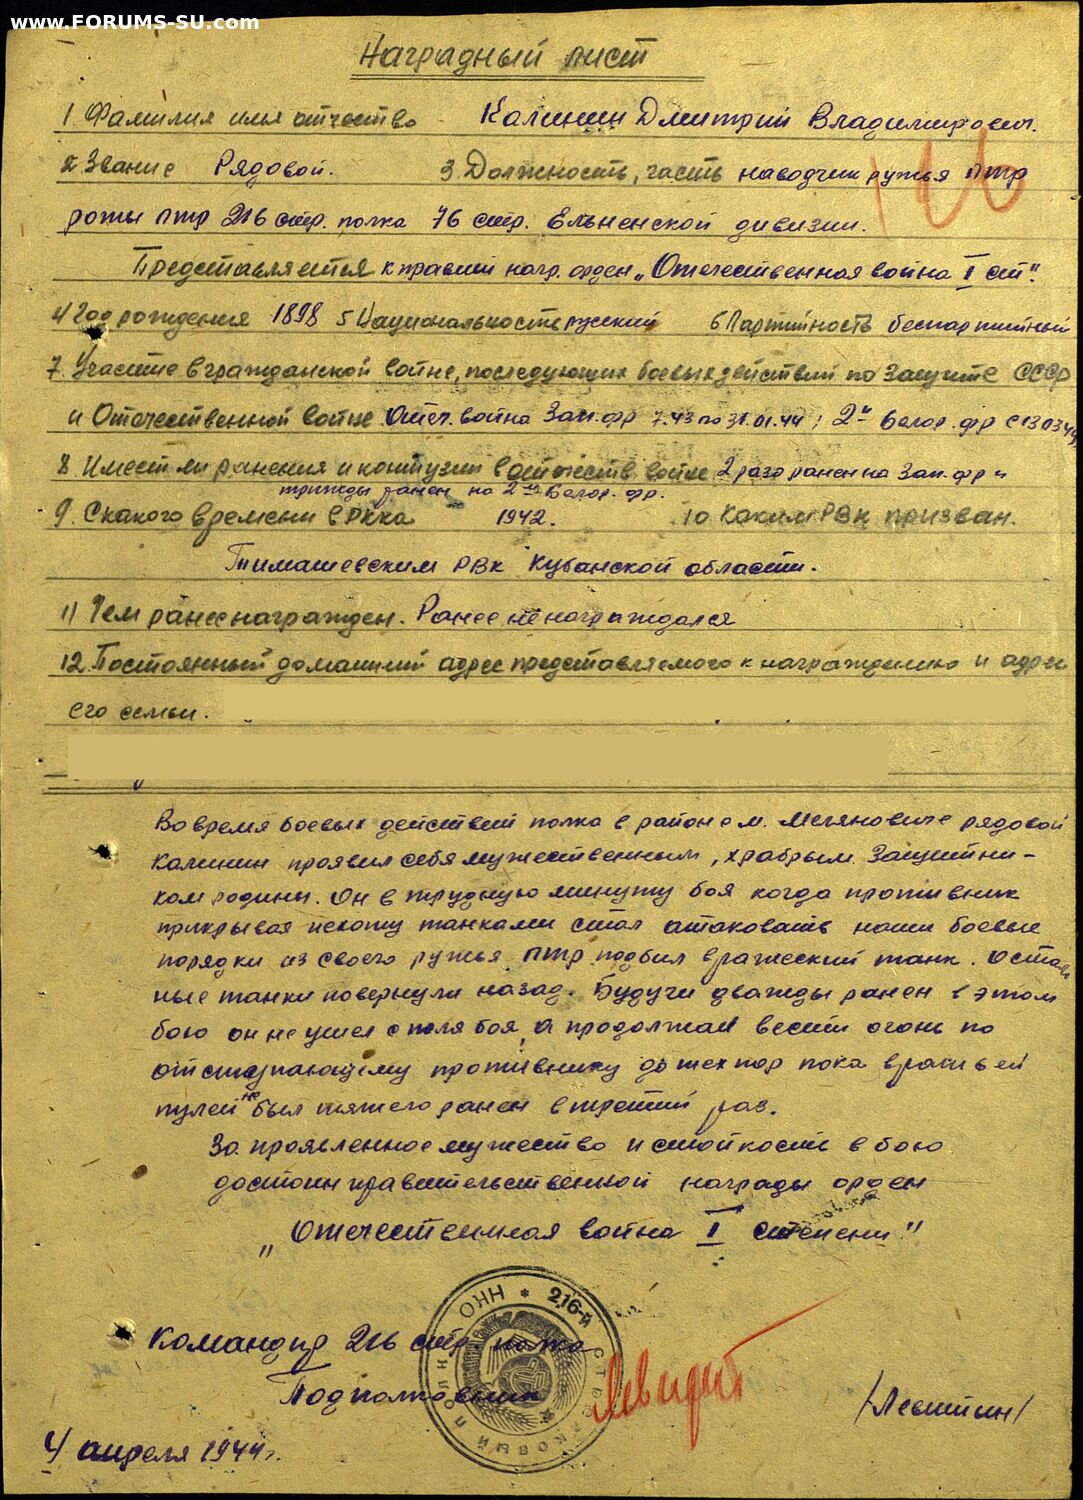 www.FORUMS-SU.com
Наградный лист
1. Фамилия имя отчество Калинин Дмитрий Владимирович.
2 Звание Рядовой. 3. Должность, часть наводчик ружья птр
роты птр 216 стр. полка 76 стр. Ельненской дивизии.
Представляется к правит. нагр. орден „Отечественная война I ст".
4 Год рождения 1898 5 Национальность русский 6 Партийность беспартийный
7. Участие в гражданской войне, последующих боевых действий по защите СССР
и Отечественной войне. Отеч. война Зап. фр 7.43 по 31.01.44; 2й Белор. фр с
8. Имеет ли ранения и контузии в отечеств. войне 2 раза ранен на Зап. фр и
трижды ранен на 2ом Белор. фр.
9. С какого времени в РККА 1942. 10 Каким РВК призван.
Тимашевским РВК Кубанской области.
11) Чем ранее награжден. Ранее не награждался
12. Постоянный домашний адрес представляемого к награждению и адрес
его семьи.
Во время боевых действий полка в районе м. рядовой
Калинин проявил себя мужественным, храбрым защитни-
ком родины. Он в трудную минуту боя когда противник
прикрывая пехоту танками стал атаковать наши боевые
порядки из своего ружья ПТР подбил вражеский танк. Осталь
ные танки повернули назад. Будучи дважды ранен в этом
бою он не ушел с поля боя, а продолжал вести огонь по
отступающему противнику до тех пор пока вражьей
пулей не был тяжело ранен в третий раз.
За проявленное мужество и стойкость в бою
достоин правительственной награды орден
„Отечественная война I степени"
Командир 216 стр. полка
Подполковник /Левитин/
4 апреля 1944 г.
НКО * 216-й СТРЕЛКОВЫЙ ПОЛК